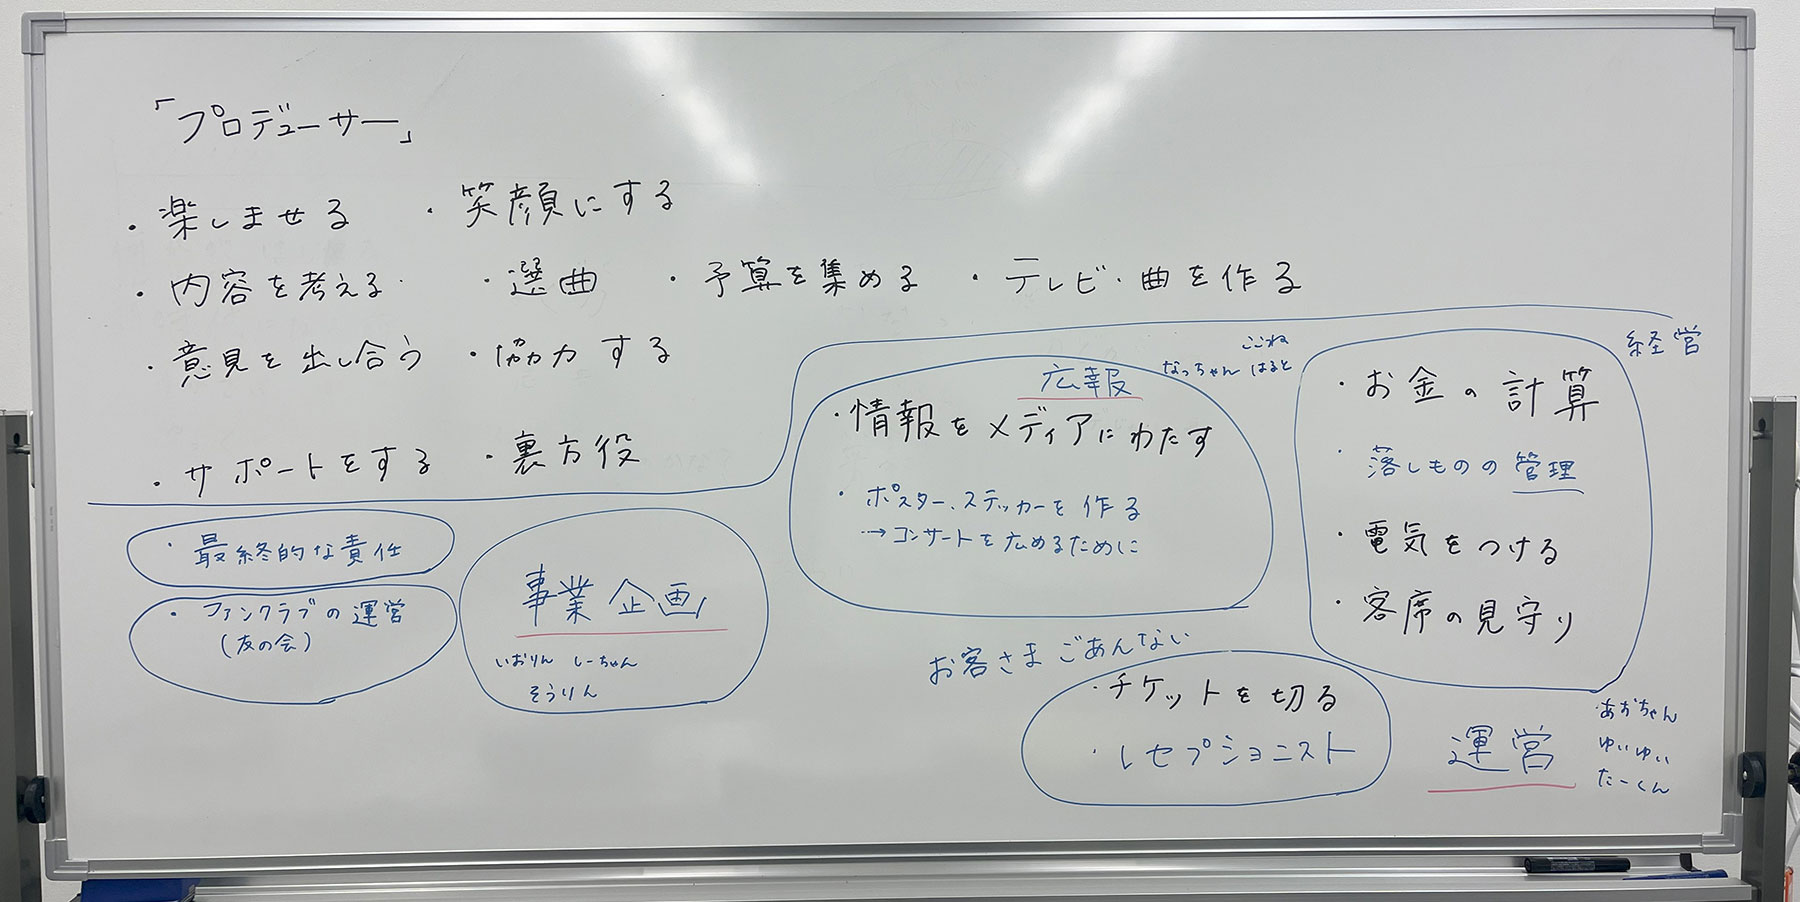 「プロデューサー」
・楽しませる ・笑顔にする
・内容を考える ・選曲 ・予算を集める ・テレビ・曲を作る
・意見を出し合う ・協力する
・サポートをする ・裏方役
・最終的な責任
・ファンクラブの運営
(友の会)
事業企画
いおりん しーちゃん
そうりん
広報
ここね
なっちゃん はると
・情報をメディアにわたす
・ポスター、ステッカーを作る
→コンサートを広めるために
経営
・お金の計算
・落しものの管理
・電気をつける
・客席の見守り
お客さまごあんない
・チケットを切る
・レセプショニスト
運営
あおちゃん
ゆいゆい
たーくん